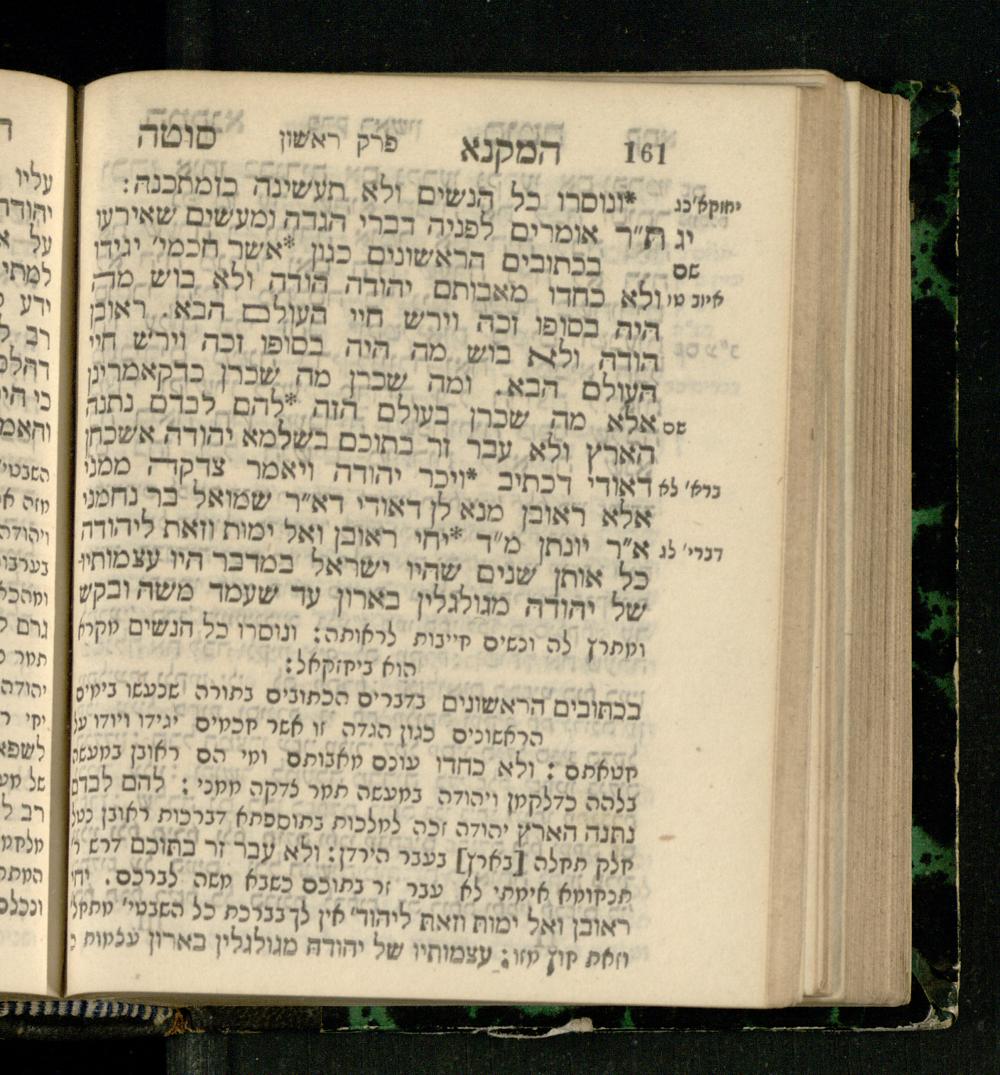 161 המקנא פרק ראשון סוטה
יחזקא' כג *ונוסרו כל הנשים ולא תעשינה כזמתכנה:
יג ת"ר אומרים לפניה דברי הגדה ומעשים שאירעו
שם בכתובים הראשונים כגון *אשר חכמי' יגידו
איוב טו ולא כחדו מאבותם יהודה הודה ולא בוש מה
היה בסופו זכה וירש חיי העולם הבא. ראובן
הודה ולא בוש מה היה בסופו זכה וירש חיי
העולם הבא. ומה שכרן מה שכרן כדקאמרינן
שם אלא מה שכרן בעולם הזה *להם לבדם נתנה
הארץ ולא עבר זר בתוכם בשלמא יהודה אשכחן
ברא' לא דאודי דכתיב *ויכר יהודה ויאמר צדקה ממני
אלא ראובן מנא לן דאודי דא"ר שמואל בר נחמני
דברי' לג א"ר יונתן מ"ד *יחי ראובן ואל ימות וזאת ליהודה
כל אותן שנים שהיו ישראל במדבר היו עצמותיו
של יהודה מגולגלין בארון עד שעמד משה ובקש
ומתרץ לה ונשים חייבות לראותה: ונוסרו כל הנשים מקרא
הוא ביחזקאל:
בכתובים הראשונים בדברים הכתובים בתורה שנעשו בימים
הראשונים כגון הגדה זו אשר חכמים יגידו ויודו על
חטאתם: ולא כחדו עונם מאבותם ומי הם ראובן במעשה
בלהה כדלקמן ויהודה במעשה תמר צדקה ממני: להם לבדם
נתנה הארץ יהודה זכה למלכות בתוספתא דברכות ראובן נטל
חלק תחלה [בארץ] בעבר הירדן: ולא עבר זר בתוכם דרש ר'
תנחומא אימתי לא עבר זר בתוכם כשבא משה לברכם. יחי
ראובן ואל ימות וזאת ליהוד' אין לך בברכת כל השבטי' מתחל'
וזאת חוץ מזו: עצמותיו של יהודה מגולגלין בארון עצמות
עליו
על א
ידע
רב ל
כי חי
והאמ
השבטי'
מזה א
ויהודה
גרם ל
יהודה
יחי ר
לשפא
של מע
רב ל
המתח
ונכלס